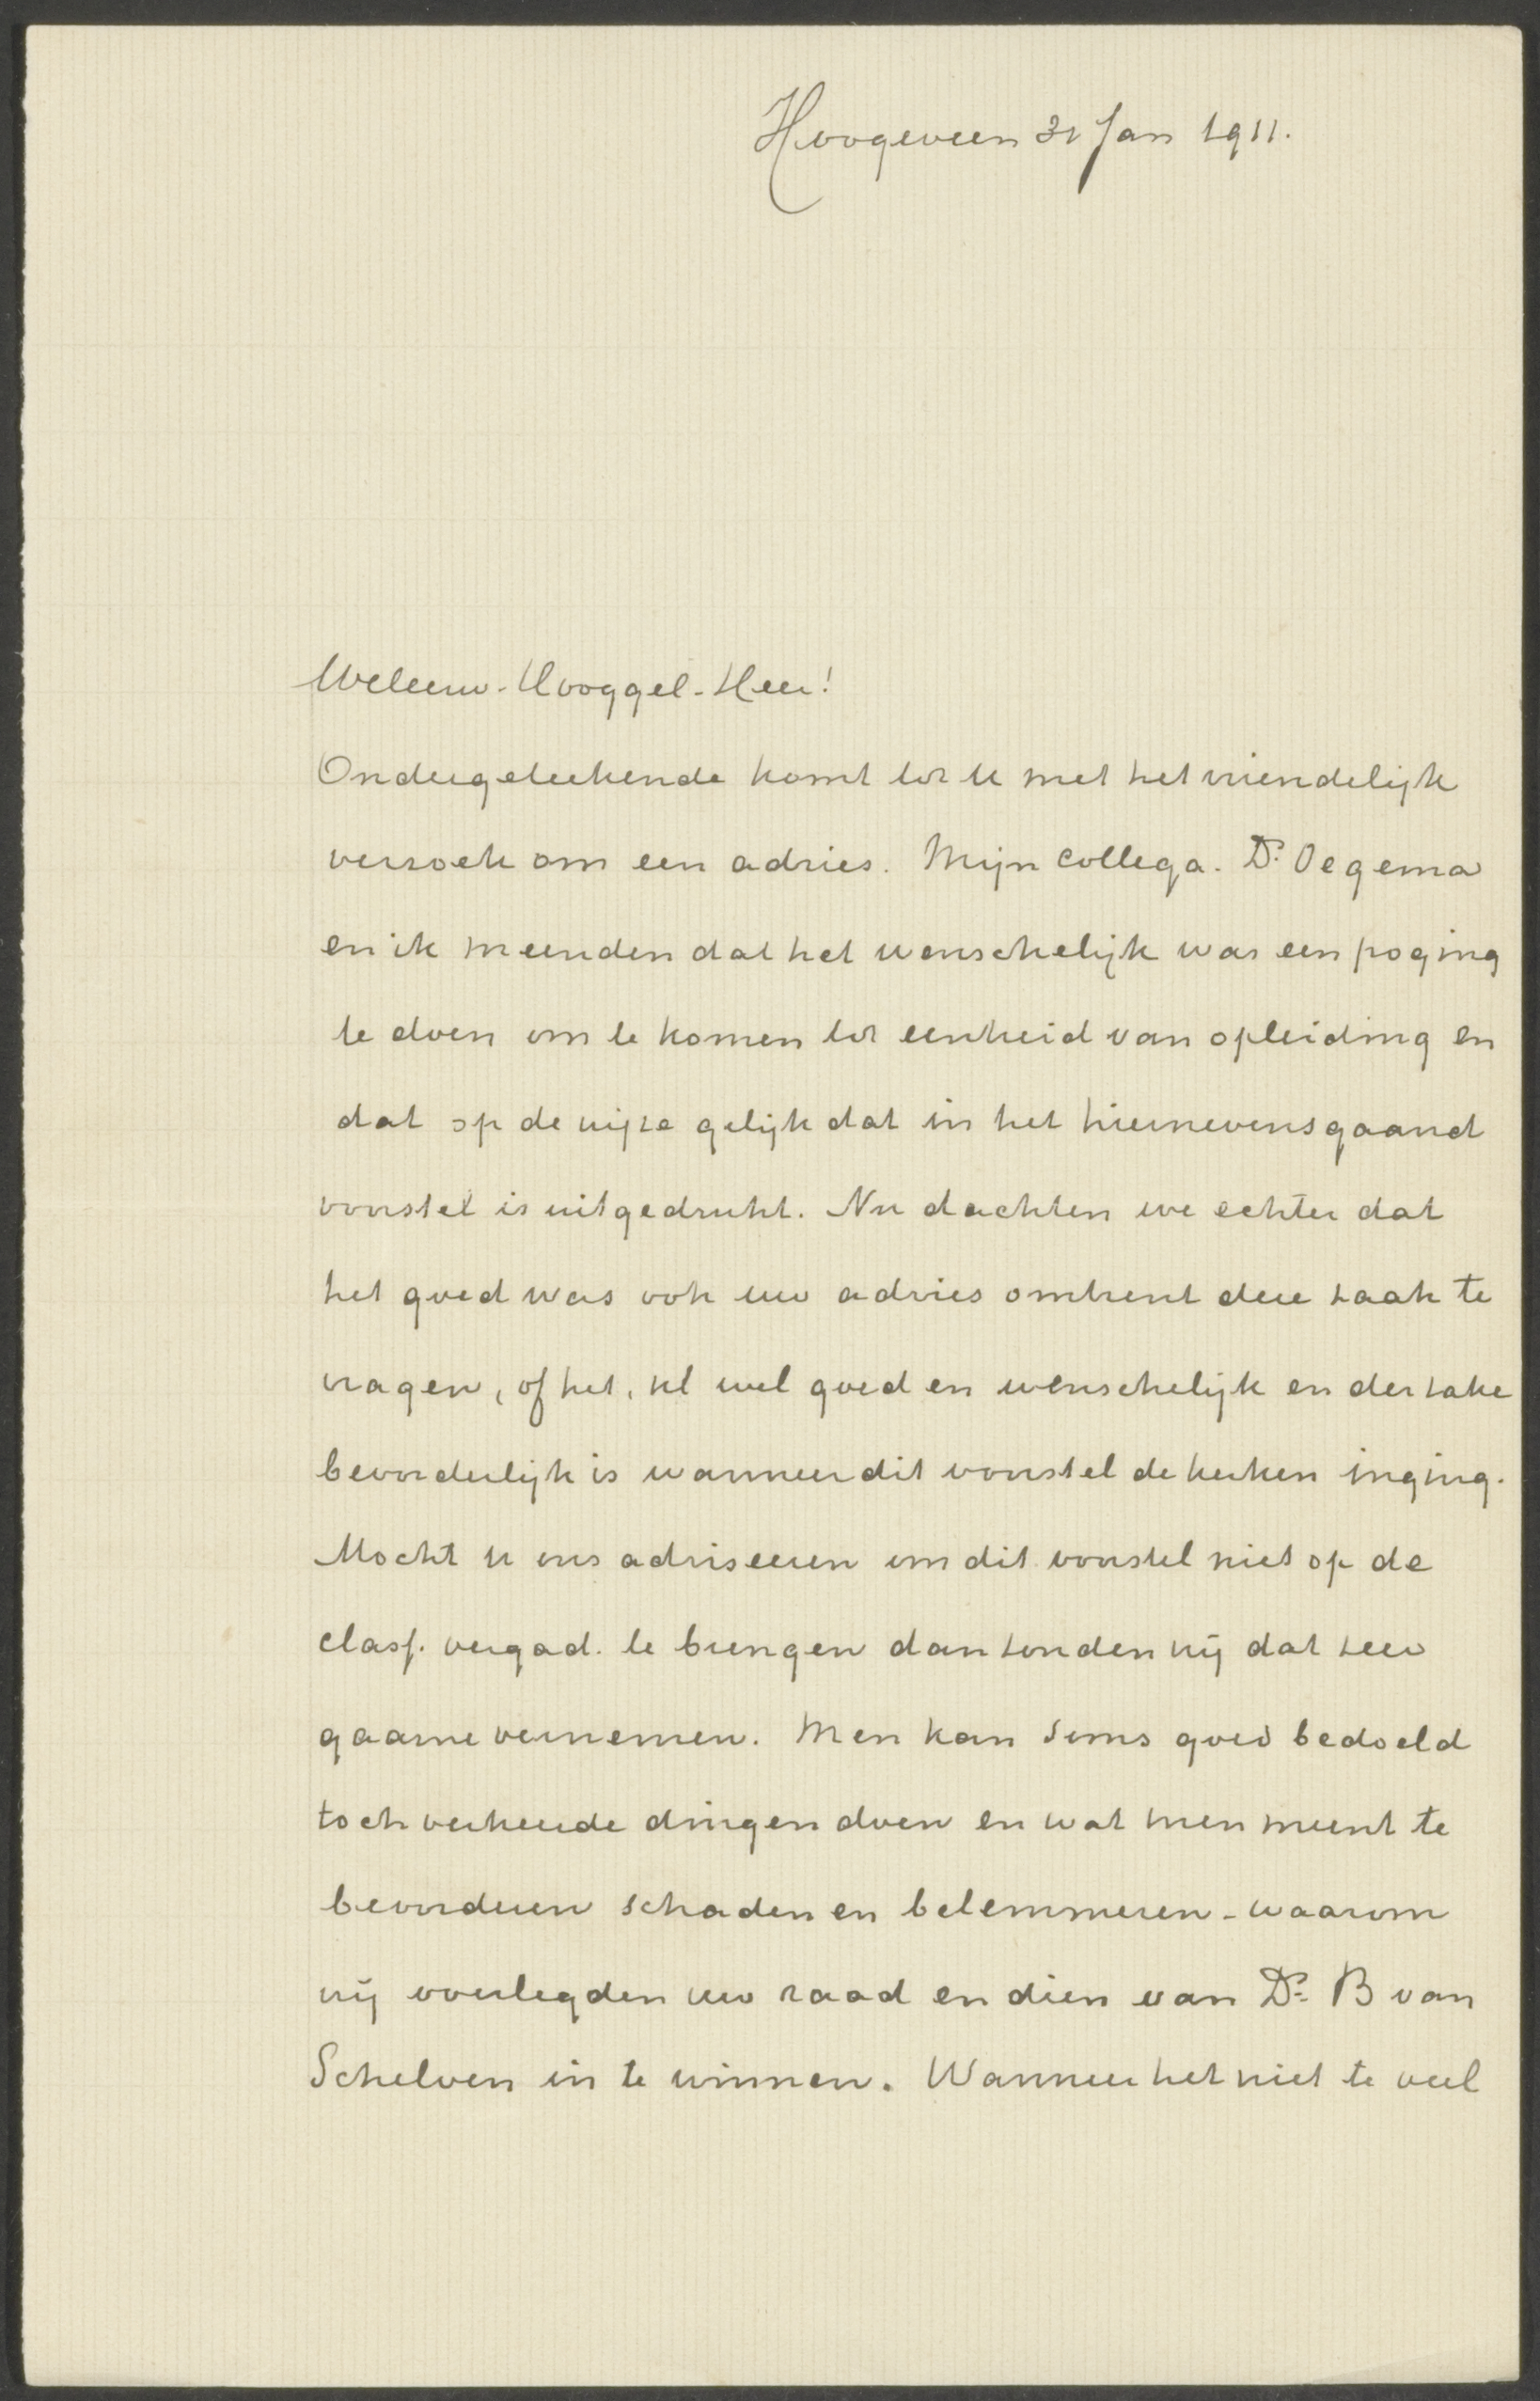 Hoogeveen 31 Jan 1911.
Weleerw. Hooggel. Heer!
Ondergeteekende komt tot U met het vriendelijk
verzoek om een advies. Mijn collega. Ds. Oegema
en ik meenden dat het wenschelijk was een poging
te doen om te komen tot eenheid van opleiding en
dat op de wijze gelijk dat in het hiernevensgaand
voorstel is uitgedrukt. Nu dachten we echter dat
het goed was ook uw advies omtrent deze zaak te
vragen, of het, nl wel goed en wenschelijk en der zake
bevorderlijk is wanneer dit voorstel de kerken inging.
Mocht u ons adviseeren om dit voorstel niet op de
class. vergad. te brengen dan zouden wij dat zeer
gaarne vernemen. Men kan soms goed bedoeld
toch verkeerde dingen doen en wat men meent te
bevorderen schaden en belemmeren - waarom
wij overlegden uw raad en dien van Ds. B van
Schelven in te winnen. Wanneer het niet te veel